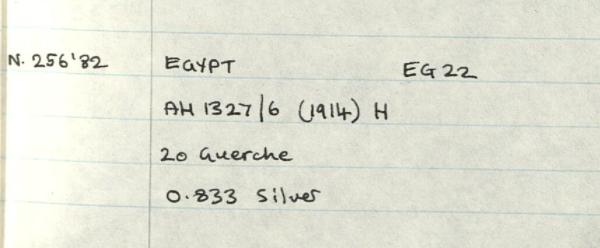 N. 256'82 EGYPT EG 22
AH 1327/6 (1914) H
20 Guerche
0.833 Silver